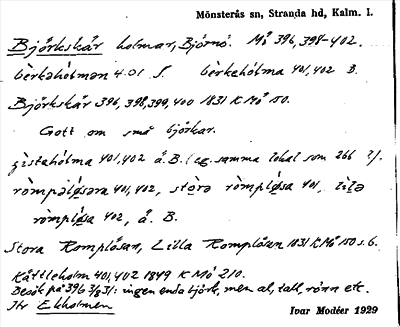 Mönsterås sn, Stranda hd, Kalm. l.
Björkskär holmar, Björnö. Mö 396, 398-402.
bèrkəhólmən 401 S. bèrkəhólma 401, 402 B.
Björkskär 396, 398, 399, 400 1831 K Mö 150.
Gott om små björkar.
gìstahólma 401, 402 å. B. (eg. samma lokal som 266 ?).
ròmpəlǻsəra 401, 402, stòrə ròmplǻsa 401, lìlə
ròmplǻsa 402, å. B.
Stora Romplåsan, Lilla Romplåsan 1831 K Mö 150 s. 6.
Kättleholm 401, 402 1849 K Mö 210.
Besök på 396 3/8 31: ingen enda björk, men al, tall, rönn etc.
Jfr Ekholmen
Ivar Modéer 1929